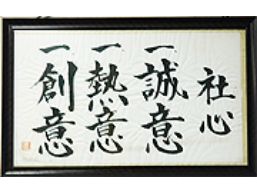 社心
一誠意
一熱意
一創意